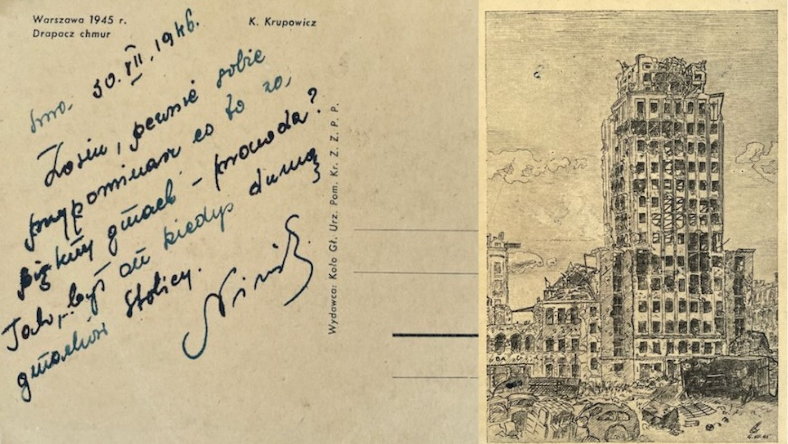 Warszawa 1945 r.
Drapacz chmur
K. Krupowicz
30.VII.1946.
Zosiu, pewnie sobie
przypominasz co to za
piękny gmach - prawda?
Tak, był on kiedyś dumą
gmachów Stolicy.
Wydawca: Koło Gł. Urz. Pom. Kr. Z. Ż. P. P.